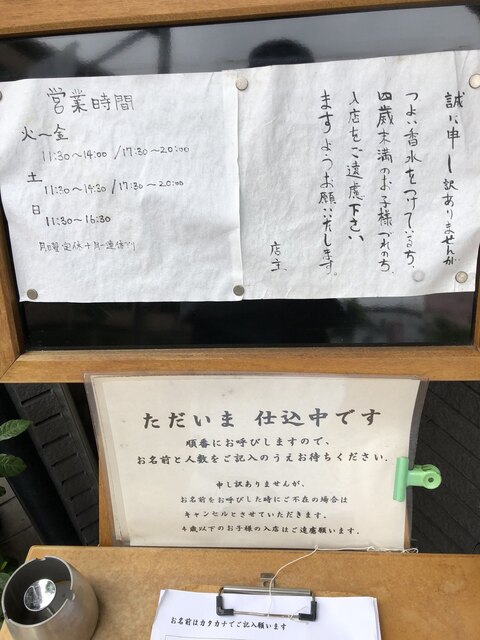 営業時間
火〜金
11:30〜14:00 / 17:30〜20:00
土
11:30〜14:30 / 17:30〜20:00
日
11:30〜16:30
月曜定休+月一連休アリ
誠に申し訳ありませんが
つよい香水をつけている方、
四歳末満のお子様づれの方、
入店をご遠慮下さい
ますようお願いいたします。
店主
ただいま 仕込中です
順番にお呼びしますので、
お名前と人数をご記入のうえお待ちください.
申し訳ありませんが、
お名前をお呼びした時にご不在の場合は
キャンセルとさせていただきます.
4歳以下のお子様の入店はご遠慮願います.
お名前はカタカナでご記入願います